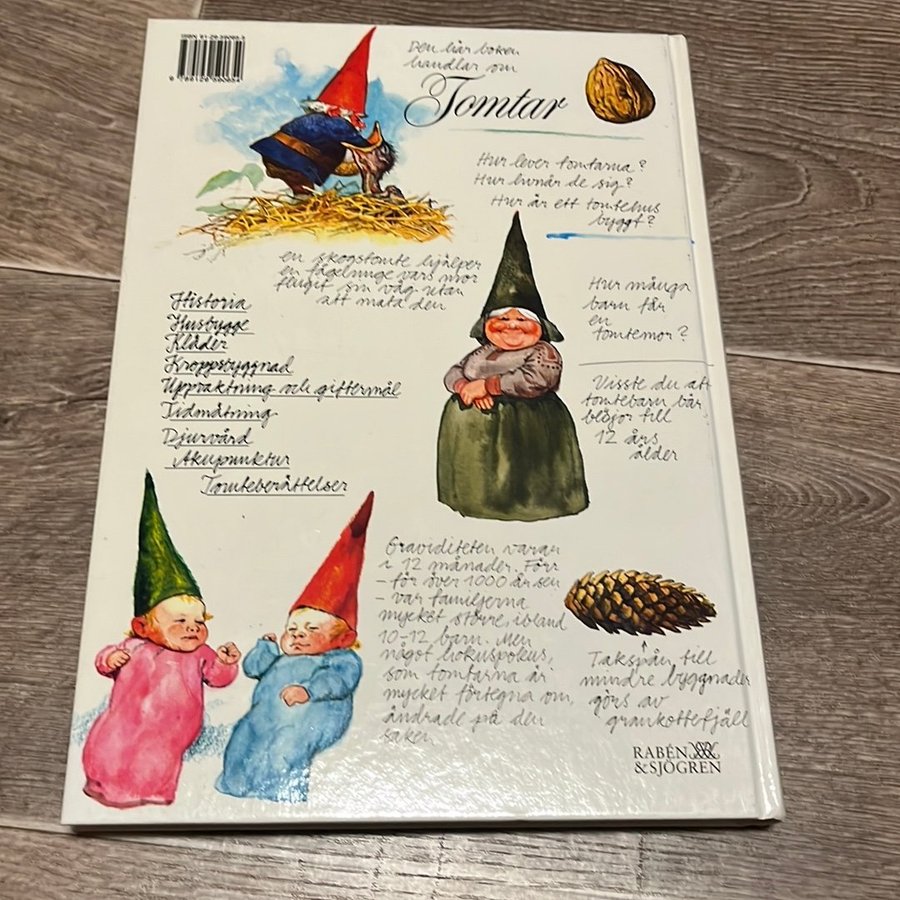 Den här boken
handlar om
Tomtar
Hur lever tomtarna?
Hur livnär de sig?
Hur är ett tomtehus
byggt?
en skogstomte hjälper
en fågelunge vars mor
flugit sin väg utan
att mata den
Historia
Husbygge
Kläder
Kroppsbyggnad
Uppvaktning och giftermål
Tidmätning
Djurvård
Akupunktur
Tomteberättelser
Hur många
barn får
en
tomtemor?
Visste du att
tomtebarn bär
blöjor till
12 års
ålder
Graviditeten varar
i 12 månader. Förr
- för över 1000 år sen
- var familjerna
mycket större, ibland
10-12 barn. Men
något hokuspokus,
som tomtarna är
mycket förtegna om,
ändrade på den
saken
Takspån till
mindre byggnader
görs av
grankottefjäll
RABÉN
& SJÖGREN